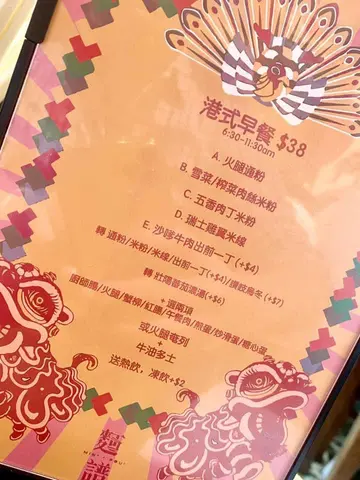 港式早餐 $38
6:30-11:30am
A. 火腿通粉
B. 雪菜/榨菜肉絲米粉
C. 五香肉丁米粉
D. 瑞士雞翼米線
E. 沙嗲牛肉出前一丁 (+$4)
轉 通粉/米粉/米線/出前一丁(+$4)/讚岐烏冬 (+$7)
轉 壯陽番茄濃湯 (+$6)
+ 選兩項
廚師腸/火腿/蟹柳/紅腸/午餐肉/煎蛋/炒滑蛋/糖心蛋
或火腿奄列
+
牛油多士
送熱飲, 凍飲+$2
麵譜